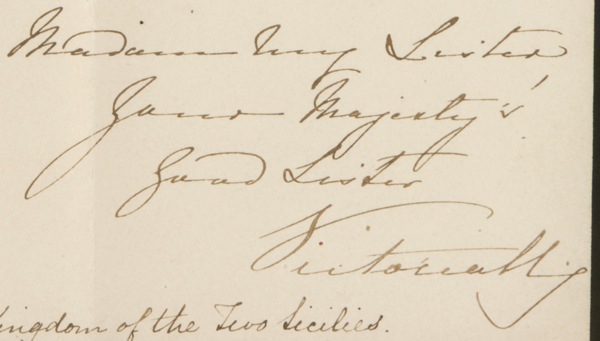 Madam My Sister
Your Majesty's
Good Sister
Victoria R
Kingdom of the Two Sicilies.